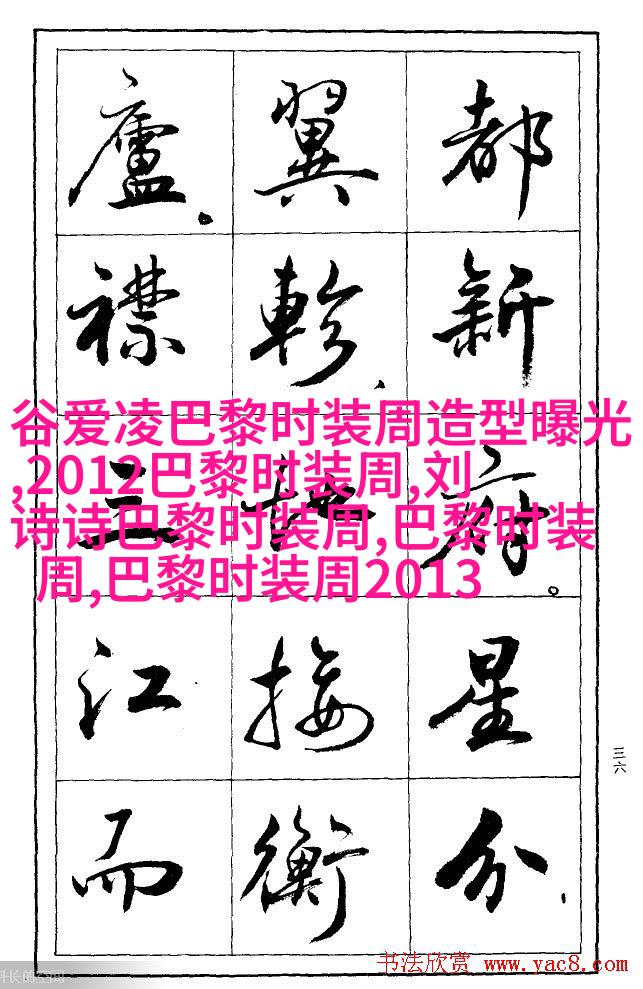 都新府。星分、
翼軫、地接衡
廬。襟三江而
谷爱凌巴黎时装周造型曝光
,2012巴黎时装周,刘
诗诗巴黎时装周,巴黎时装
周,巴黎时装周2013
三六
长的空间
书法欣赏 www.yac8.com